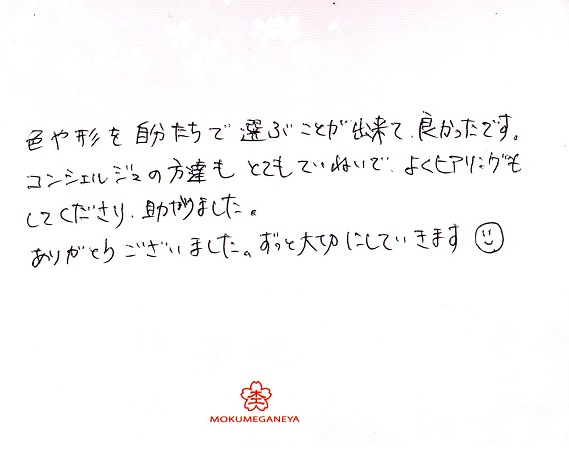 色や形を自分たちで選ぶことが出来て、良かったです。
コンシェルジュの方達もとてもていねいで、よくヒアリングも
してくださり、助かりました。
ありがとうございました。ずっと大切にしていきます
MOKUMEGANEYA